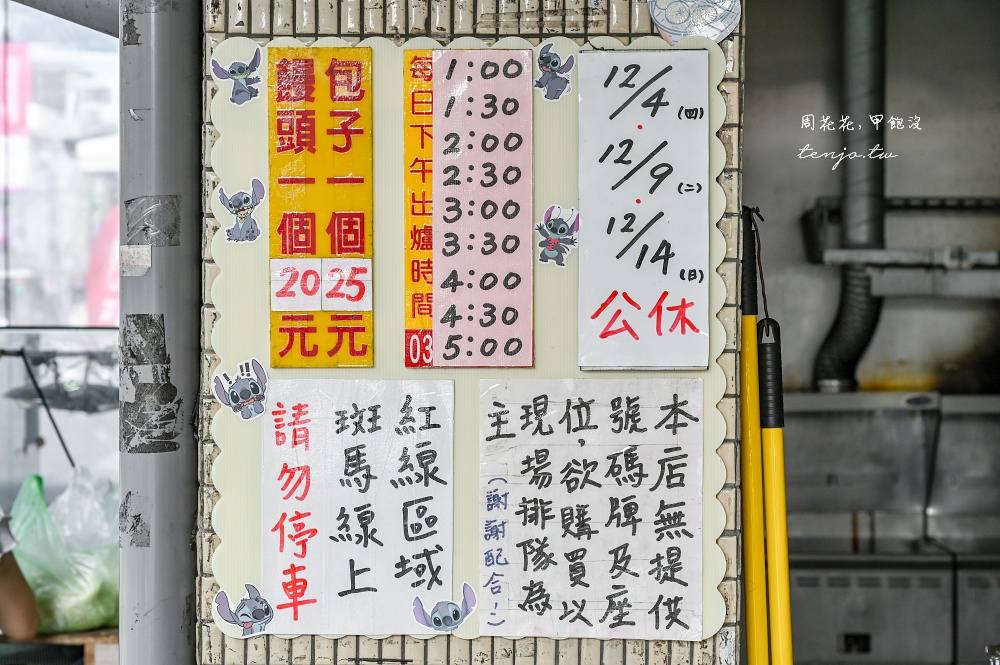 包子一個25元
饅頭一個20元
每日下午出爐時間
03
1:00
1:30
2:00
2:30
3:00
3:30
4:00
4:30
5:00
12/4(四)
12/9(二)
12/14(日)
公休
紅線區域
斑馬線上
請勿停車
本店無提供
號碼牌及座
位,欲購買以
現場排隊為
主
(謝謝配合!)
周花花,甲飽沒
tenjo.tw